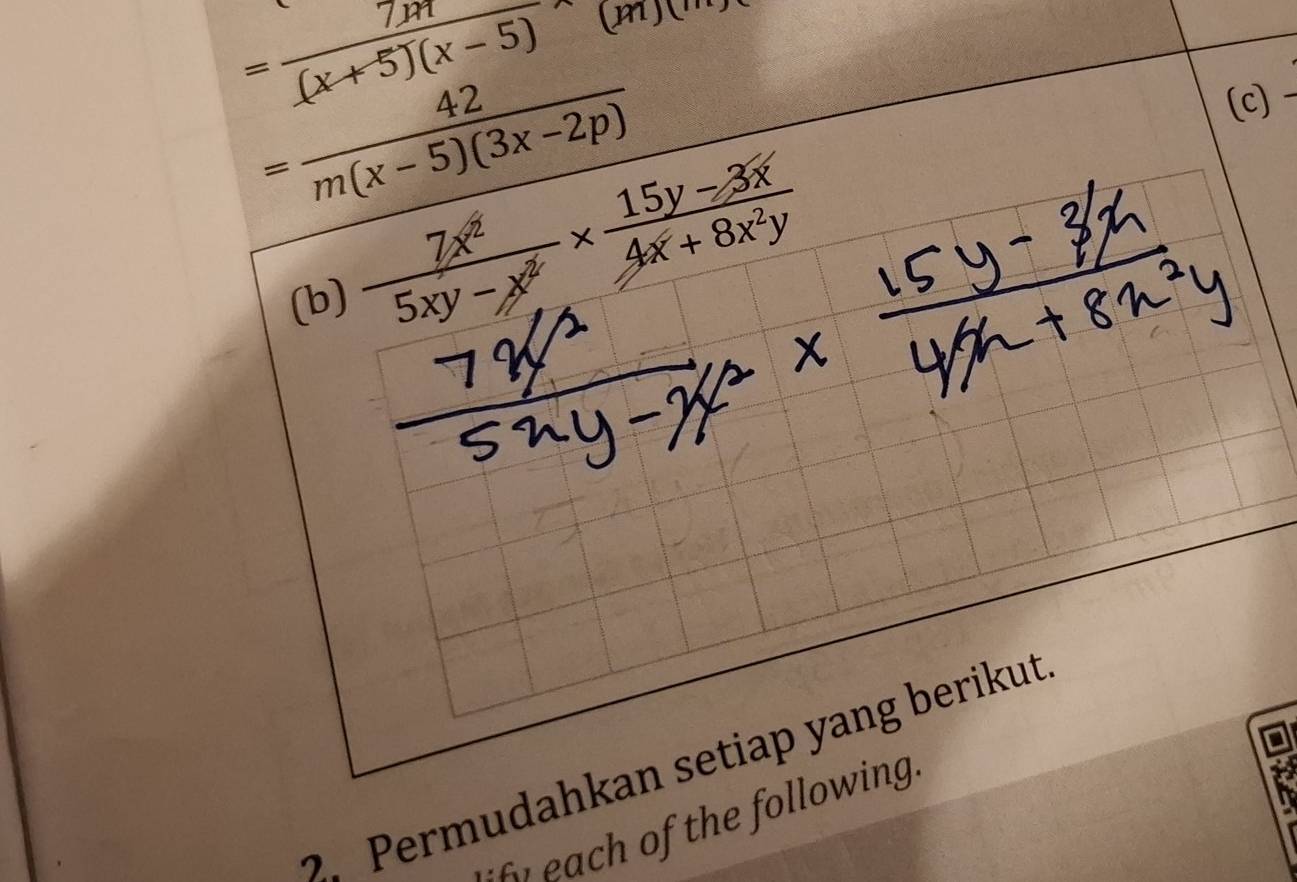 = 7m / (x + 5)(x − 5) (m)(
= 42 / m(x − 5)(3x − 2p)
(c)
(b) 7x² / 5xy − x² × 15y − 3x / 4x + 8x²y
7x² / 5xy − x² × 15y − 3x / 4x + 8x²y
2. Permudahkan setiap yang berikut.
each of the following.